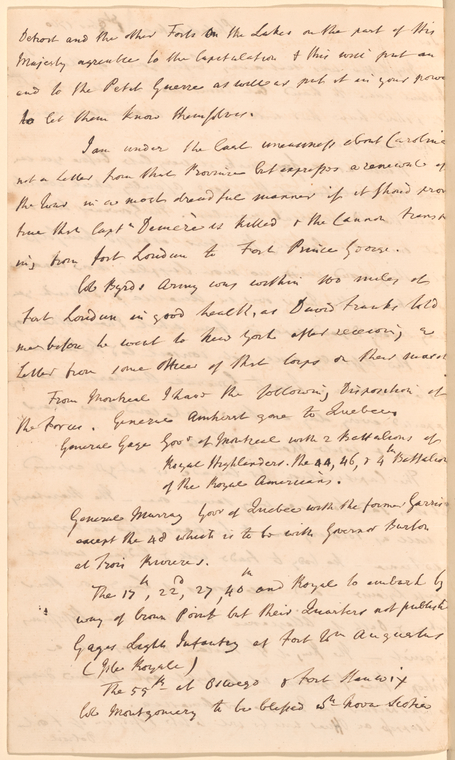 Detroit and the other Forts on the Lakes on the part of His
Majesty agreeable to the Capitulation & this will put an
end to the Petit Guerre as well as put it in your power
to let them know themselves.
I am under the last uneasiness about Carolina
not a letter from that Province but expresses a renewal of
the War in a most dreadful manner if it should prove
true that Captn Demere is killed & the Cannon transp
ing from fort Loudun to Fort Prince George.
Col Byrds Army was within 100 miles of
Fort Loudun in good health, as David Franks told
me before he went to New York after receiving a
letter from some officer of that Corps on their march
From Montreal I have the following Disposition of
the Forces. General Amherst gone to Quebec,
General Gage Govr of Montreal with 2 Battalions of
Royal Highlanders. The 44, 46, & 4th Battalion
of the Royal Americans.
General Murray Govr of Quebec with the former Garrison
except the 48 which is to be with Governor Burton
at Trois Rivieres.
The 17th, 22d, 27, 40th and Royal to embark by
way of Crown Point but their Quarters not publish
Gages Light Infantry at Fort Wm Augustus
(Isle Royale)
The 55th at Oswego & Fort Stanwix
Col Montgomery to be blessed wth Nova Scotia